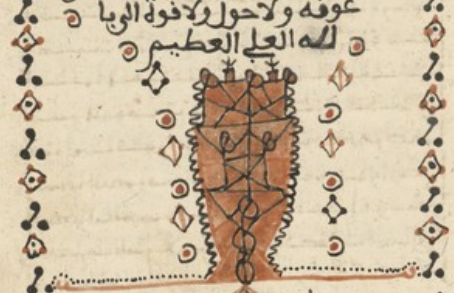 عونه ولا حول ولا قوة الا با
لله العلي العظيم